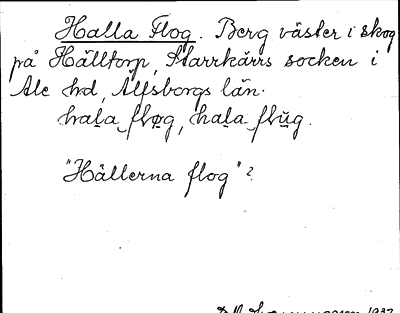 Halla Flog. Berg väster i skog
på Hälltorp, Starrkärrs socken i
Ale hd, Älfsborgs län.
hala fløg, hala flŭg.
"Hällerna flog"?
1937